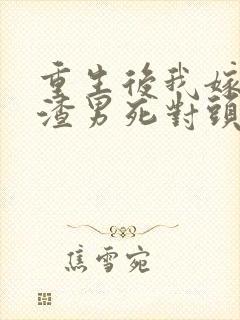 重生後我嫁
渣男死對頭
焦雪宛